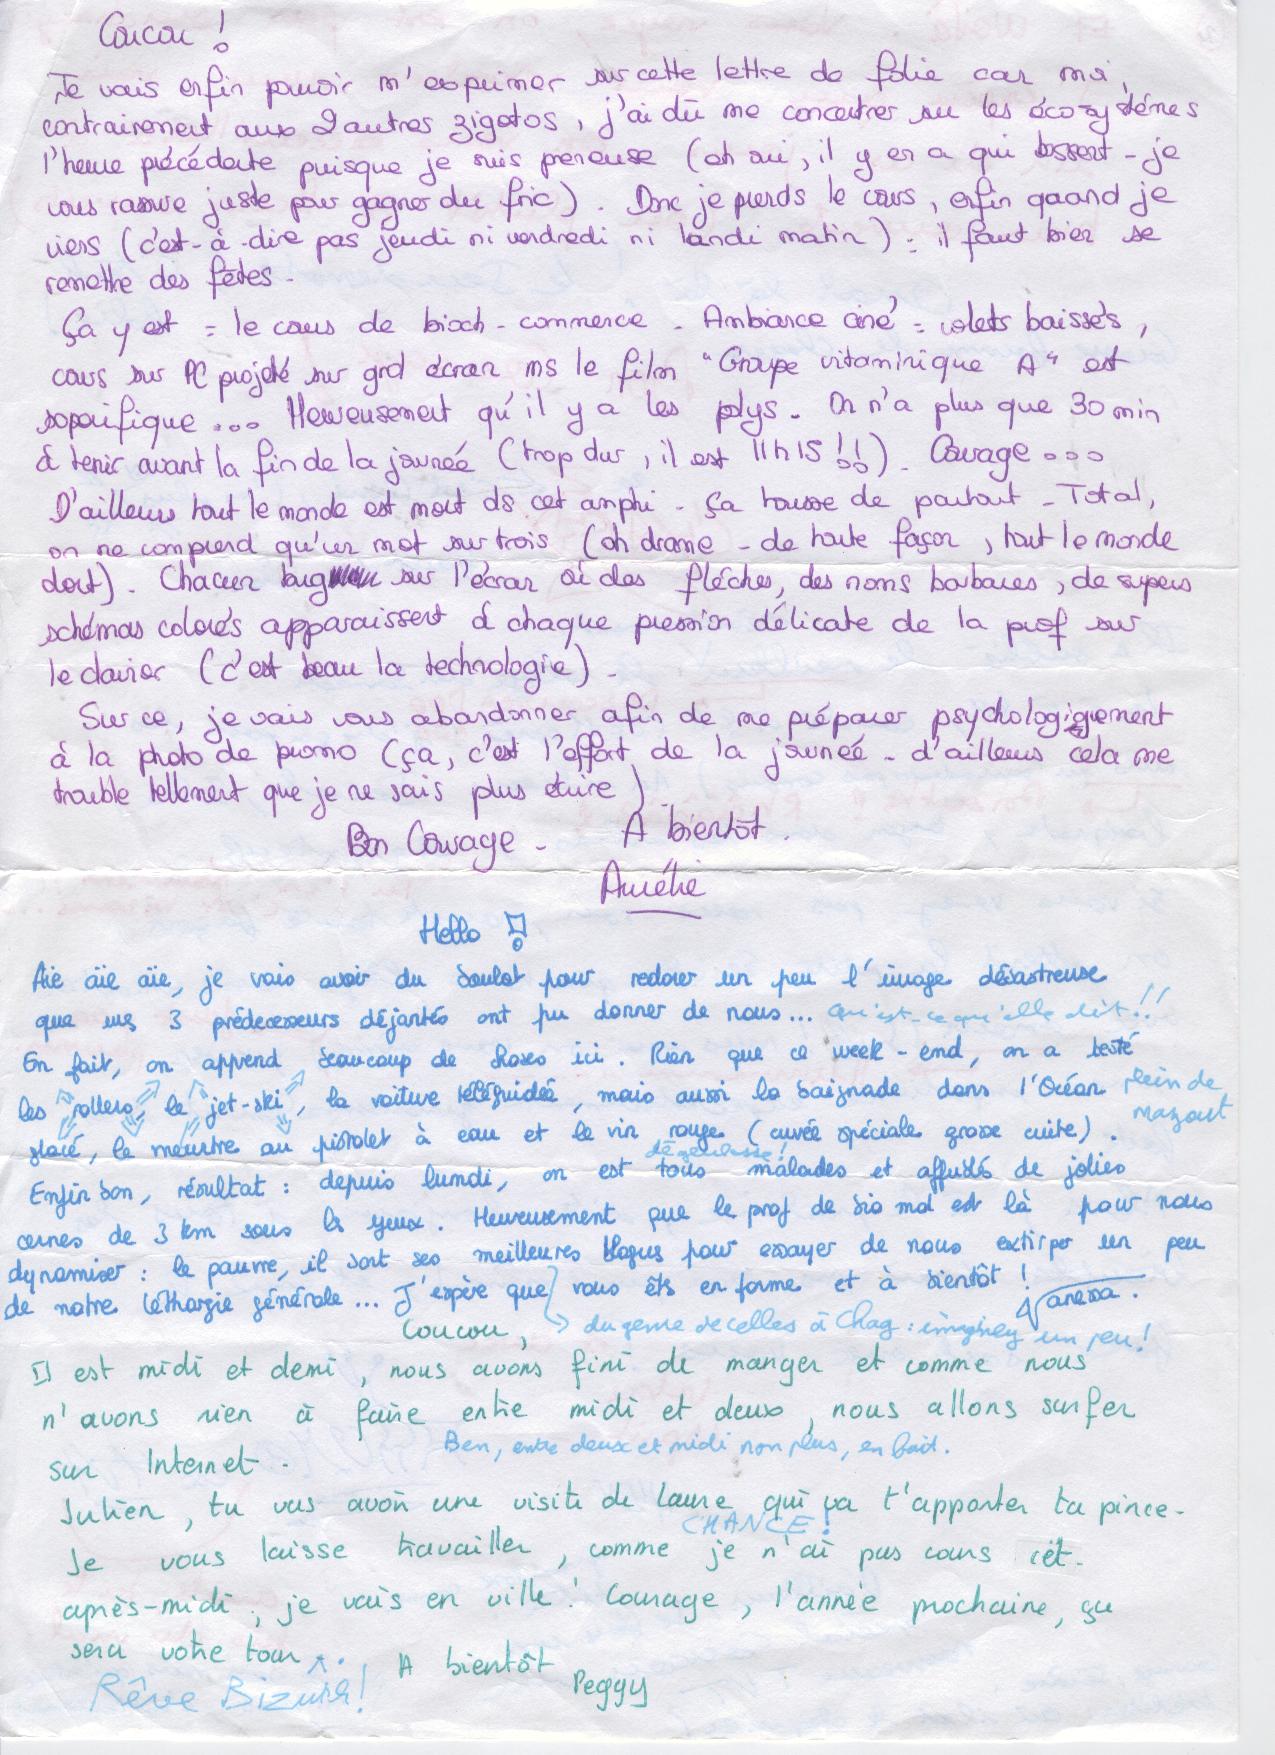 Coucou !
Je vais enfin pouvoir m'exprimer sur cette lettre de folie car moi,
contrairement aux 2 autres zigotos, j'ai dû me concentrer sur les écosystèmes
l'heure précédente puisque je suis preneuse (oh oui, il y en a qui bossent - je
vous rassure juste pour gagner du fric). Donc je prends le cours, enfin quand je
viens (c'est-à-dire pas jeudi ni vendredi ni lundi matin) : il faut bien se
remettre des fêtes.
Ça y est = le cours de bioch-commerce. Ambiance ciné = volets baissés,
cours sur PC projeté sur grd écran ms le film "Groupe vitaminique A" est
soporifique... Heureusement qu'il y a les polys. On n'a plus que 30 min
à tenir avant la fin de la journée (trop dur, il est 11h15 !!). Courage...
D'ailleurs tout le monde est mort ds cet amphi. Ça tousse de partout - Total,
on ne comprend qu'un mot sur trois (oh drame - de toute façon, tout le monde
dort). Chacun bug sur l'écran où des flèches, des noms barbares, de supers
schémas colorés apparaissent à chaque pression délicate de la prof sur
le clavier (c'est beau la technologie).
Sur ce, je vais vous abandonner afin de me préparer psychologiquement
à la photo de promo (ça, c'est l'effort de la journée - d'ailleurs cela me
trouble tellement que je ne sais plus écrire).
Bon Courage - A bientôt.
Aurélie
Hello !
Aïe aïe aïe, je vais avoir du boulot pour redorer un peu l'image désastreuse
que mes 3 prédecesseurs déjantés ont pu donner de nous... Qu'est-ce qu'elle dit !!
En fait, on apprend beaucoup de choses ici. Rien que ce week-end, on a testé
les rollers, le jet-ski, la voiture téléguidée, mais aussi la baignade dans l'Océan plein de mazout
glacé, le meurtre au pistolet à eau et le vin rouge (cuvée spéciale grosse cuite).
dégueulasse !
Enfin bon, résultat : depuis lundi, on est tous malades et affublés de jolies
cernes de 3 km sous les yeux. Heureusement que le prof de bio mol est là pour nous
dynamiser : le pauvre, il sort ses meilleures blagues pour essayer de nous extirper un peu
de notre léthargie générale... J'espère que vous êts en forme et à bientôt !
Vanessa.
du genre de celles à Chag : imaginez un peu !
Coucou,
Il est midi et demi, nous avons fini de manger et comme nous
n'avons rien à faire entre midi et deux, nous allons surfer
Ben, entre deux et midi non plus, en fait.
sur Internet.
Julien, tu vas avoir une visite de Laure qui va t'apporter ta pince.
CHANCE !
Je vous laisse travailler, comme je n'ai pas cours cet-
après-midi, je vais en ville ! Courage, l'année prochaine, ça
sera votre tour...
A bientôt
Peggy
Rêve Bizuth !